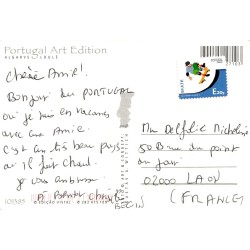 Portugal Art Edition
ALGARVE • LOULÉ
Chère Amie!
Bonjour du PORTUGAL
où je suis en vacances
avec une Amie.
C'est un très beau pays
où il fait chaud.
Je vous embrasse
A Bientôt
Mme Delfolie Micheline
50 Bis rue du point
du jour
02000 LAON
(FRANCE)